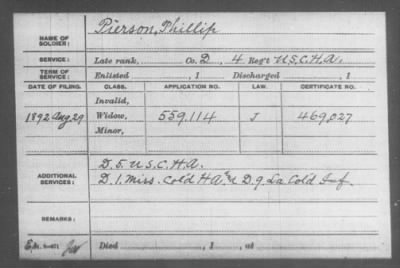 NAME OF SOLDIER: Pierson, Phillip
SERVICE: Late rank, Co. D, 4 Reg't U.S.C.H.A.
TERM OF SERVICE: Enlisted , 1 Discharged , 1
DATE OF FILING. CLASS. APPLICATION NO. LAW. CERTIFICATE NO.
Invalid,
1892 Aug. 29 Widow, 559.114 J 469,027
Minor,
ADDITIONAL SERVICES: D. 5. U.S.C.H.A.
D. 1. Miss. Cold H A & D. 9. La Cold Inf.
REMARKS:
Died , 1 , at